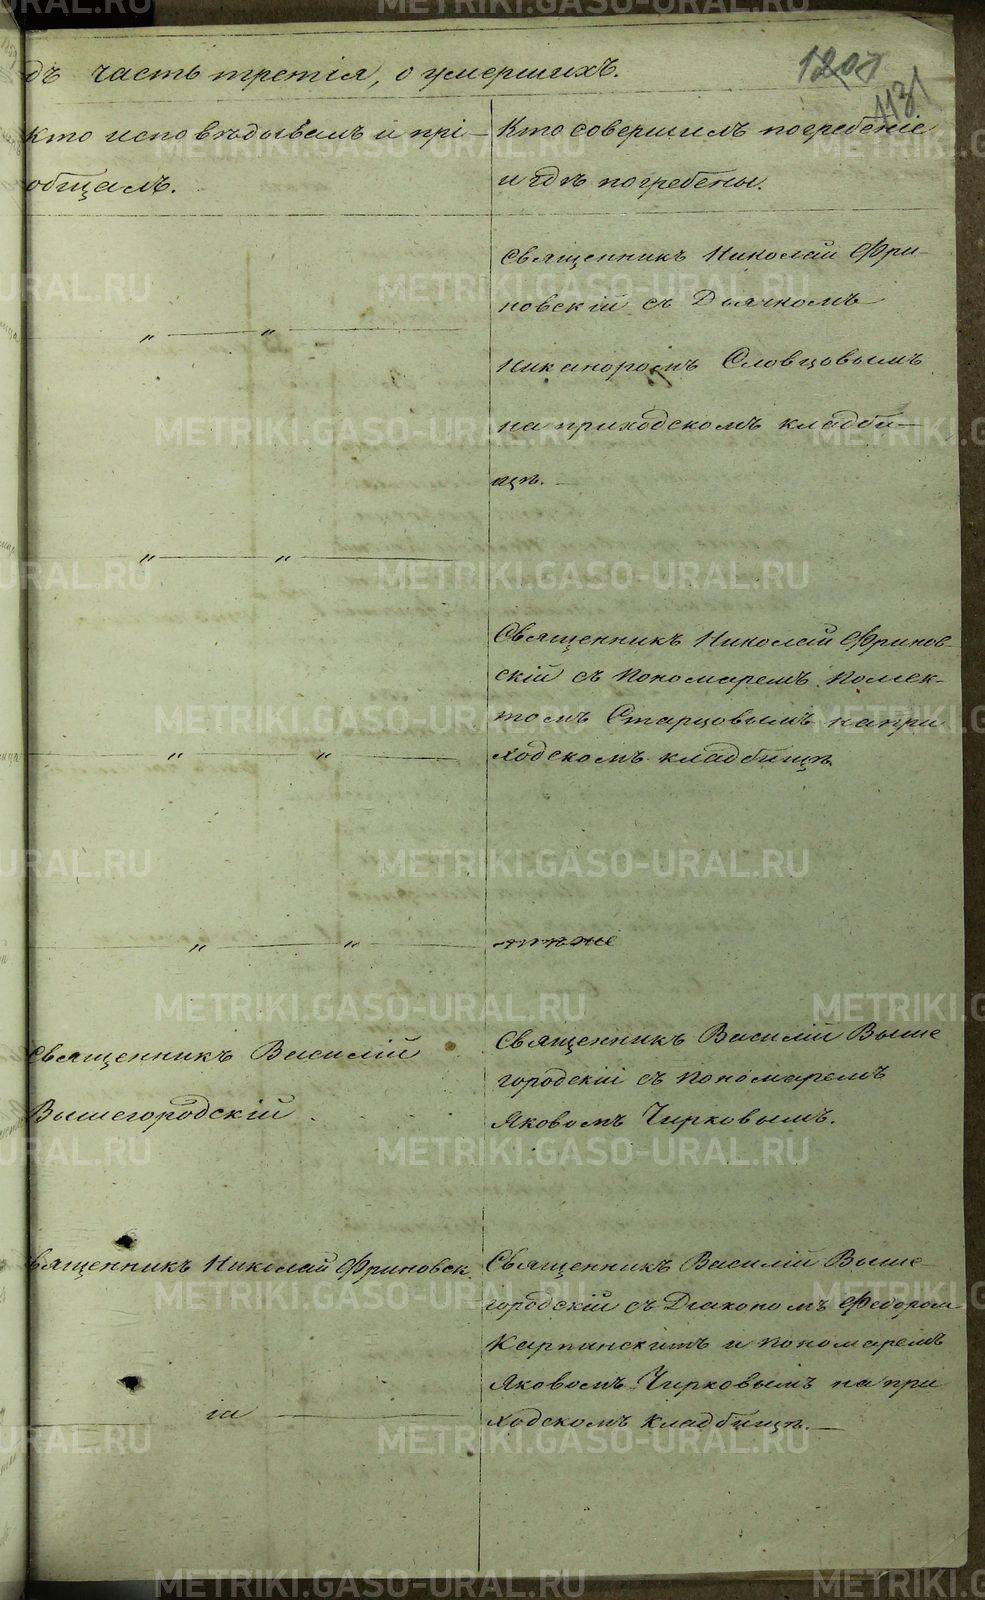 дъ часть третія, о умершихъ.
1201
1131
Кто исповѣдывалъ и прі-
общалъ.
Кто совершилъ погребеніе
и гдѣ погребены.
Священникъ Николай Фри-
новскій съ Дьячкомъ
Никаноромъ Словцовымъ
на приходскомъ кладби-
щѣ.
„ „
„ „
Священникъ Николай Фринов-
скій съ Пономаремъ Полiек-
томъ Старцовымъ на при
ходскомъ кладбищѣ
„ „
„ „
тѣже
Священникъ Василій
Вышегородскій
Священникъ Василій Выше
городскій съ Пономаремъ
Яковомъ Чирковымъ.
вященникъ Николай Фриновск
ій
Священникъ Василій Выше-
городскій съ Діакономъ Федором
Карпинскимъ и Пономаремъ
Яковомъ Чирковымъ на при
ходскомъ кладбищѣ.
METRIKI.GASO-URAL.RU